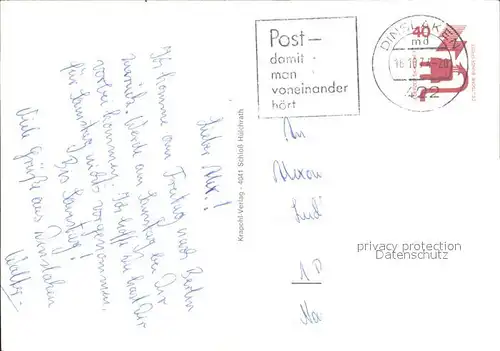 Post—
damit
man
voneinander
hört
DINSLAKEN
40
422
Krapohl-Verlag - 4041 Schloß Hülchrath
Lieber
Ich komme am Freitag nach Berlin
zurück. Werde am Samstag bei Dir
vorbei kommen. Ich hoffe Du hast Dir
für Samstag nichts vorgenommen.
Bis Samstag!
Viele Grüße aus Dinslaken
An
1
privacy protection
Datenschutz